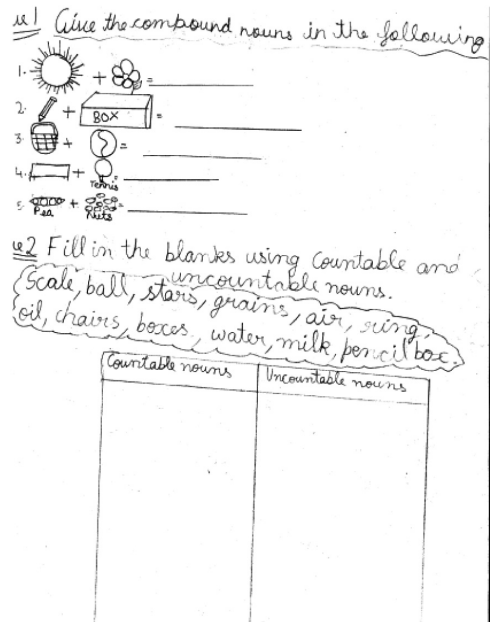 1 Give the compound nouns in the following
1. + = ____
2. + BOX = ____
3. + = ____
4. + Tennis = ____
5. Pea + Nuts = ____
2 Fill in the blanks using Countable and
uncountable nouns.
Scale, ball, stars, grains, air, ring,
oil, chairs, boxes, water, milk, pencil box.
Countable nouns Uncountable nouns